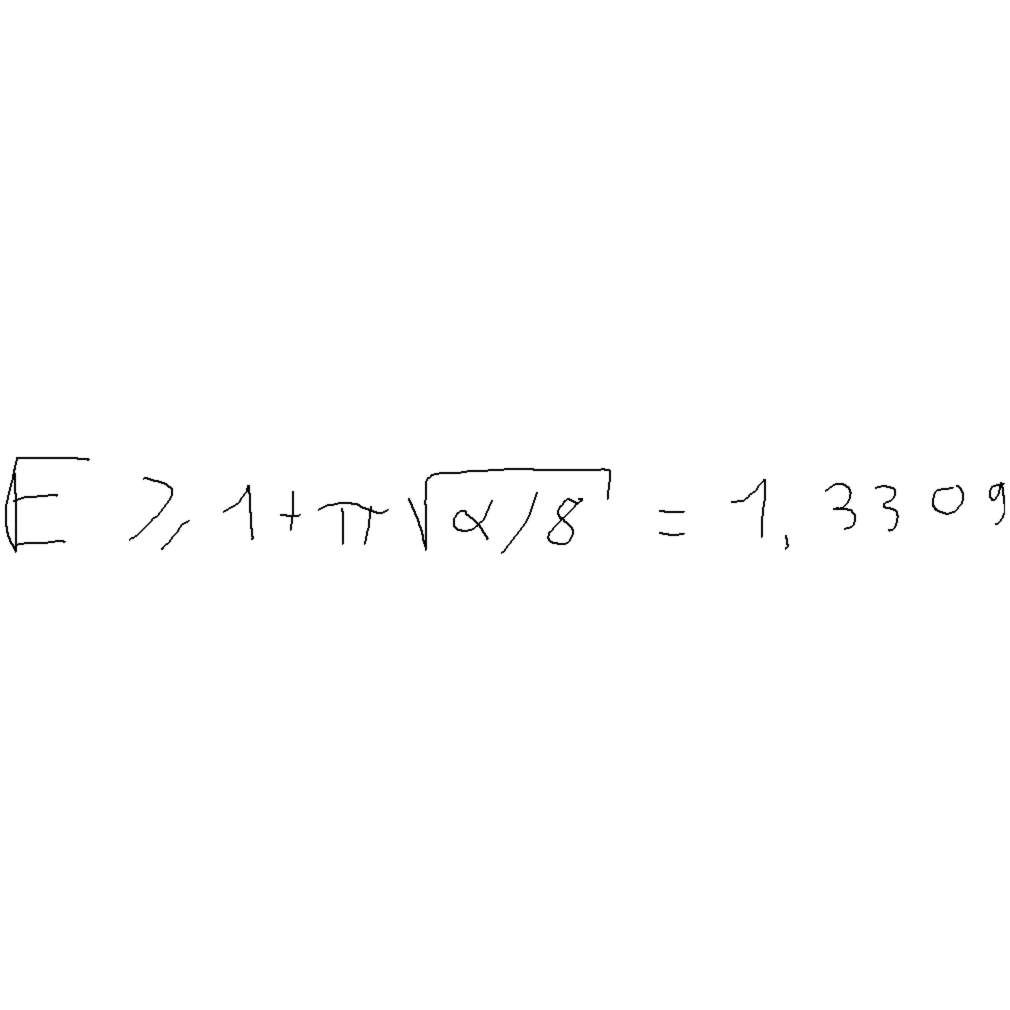 E ⩾ 1+π√(α/8) = 1,3309